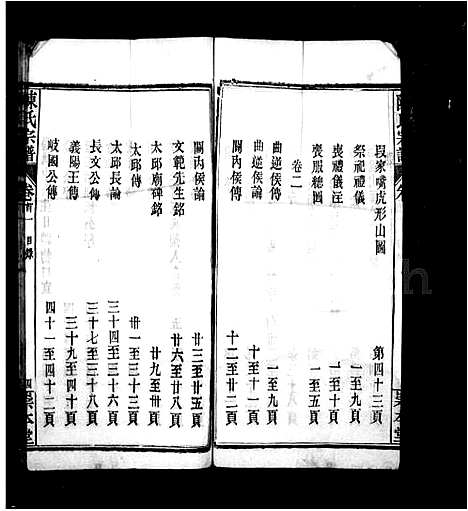 段家嘴虎形山圖 第四十三頁
祭祀禮儀 一至九頁
喪禮儀注 一至十頁
喪服總圖 一至五頁
卷二
曲逆侯論 一至九頁
曲逆侯傳 十至十一頁
關內侯傳 十二至廿二頁
關內侯論 廿三至廿五頁
文範先生銘 廿六至廿八頁
太邱廟碑銘 廿九至卅頁
太邱傳 卅一至三十三頁
太邱長論 三十四至三十六頁
長文公傳 三十七至三十八頁
義陽王傳 三十九至四十頁
岐國公傳 四十一至四十二頁
陳氏宗譜 卷首一 目錄 四